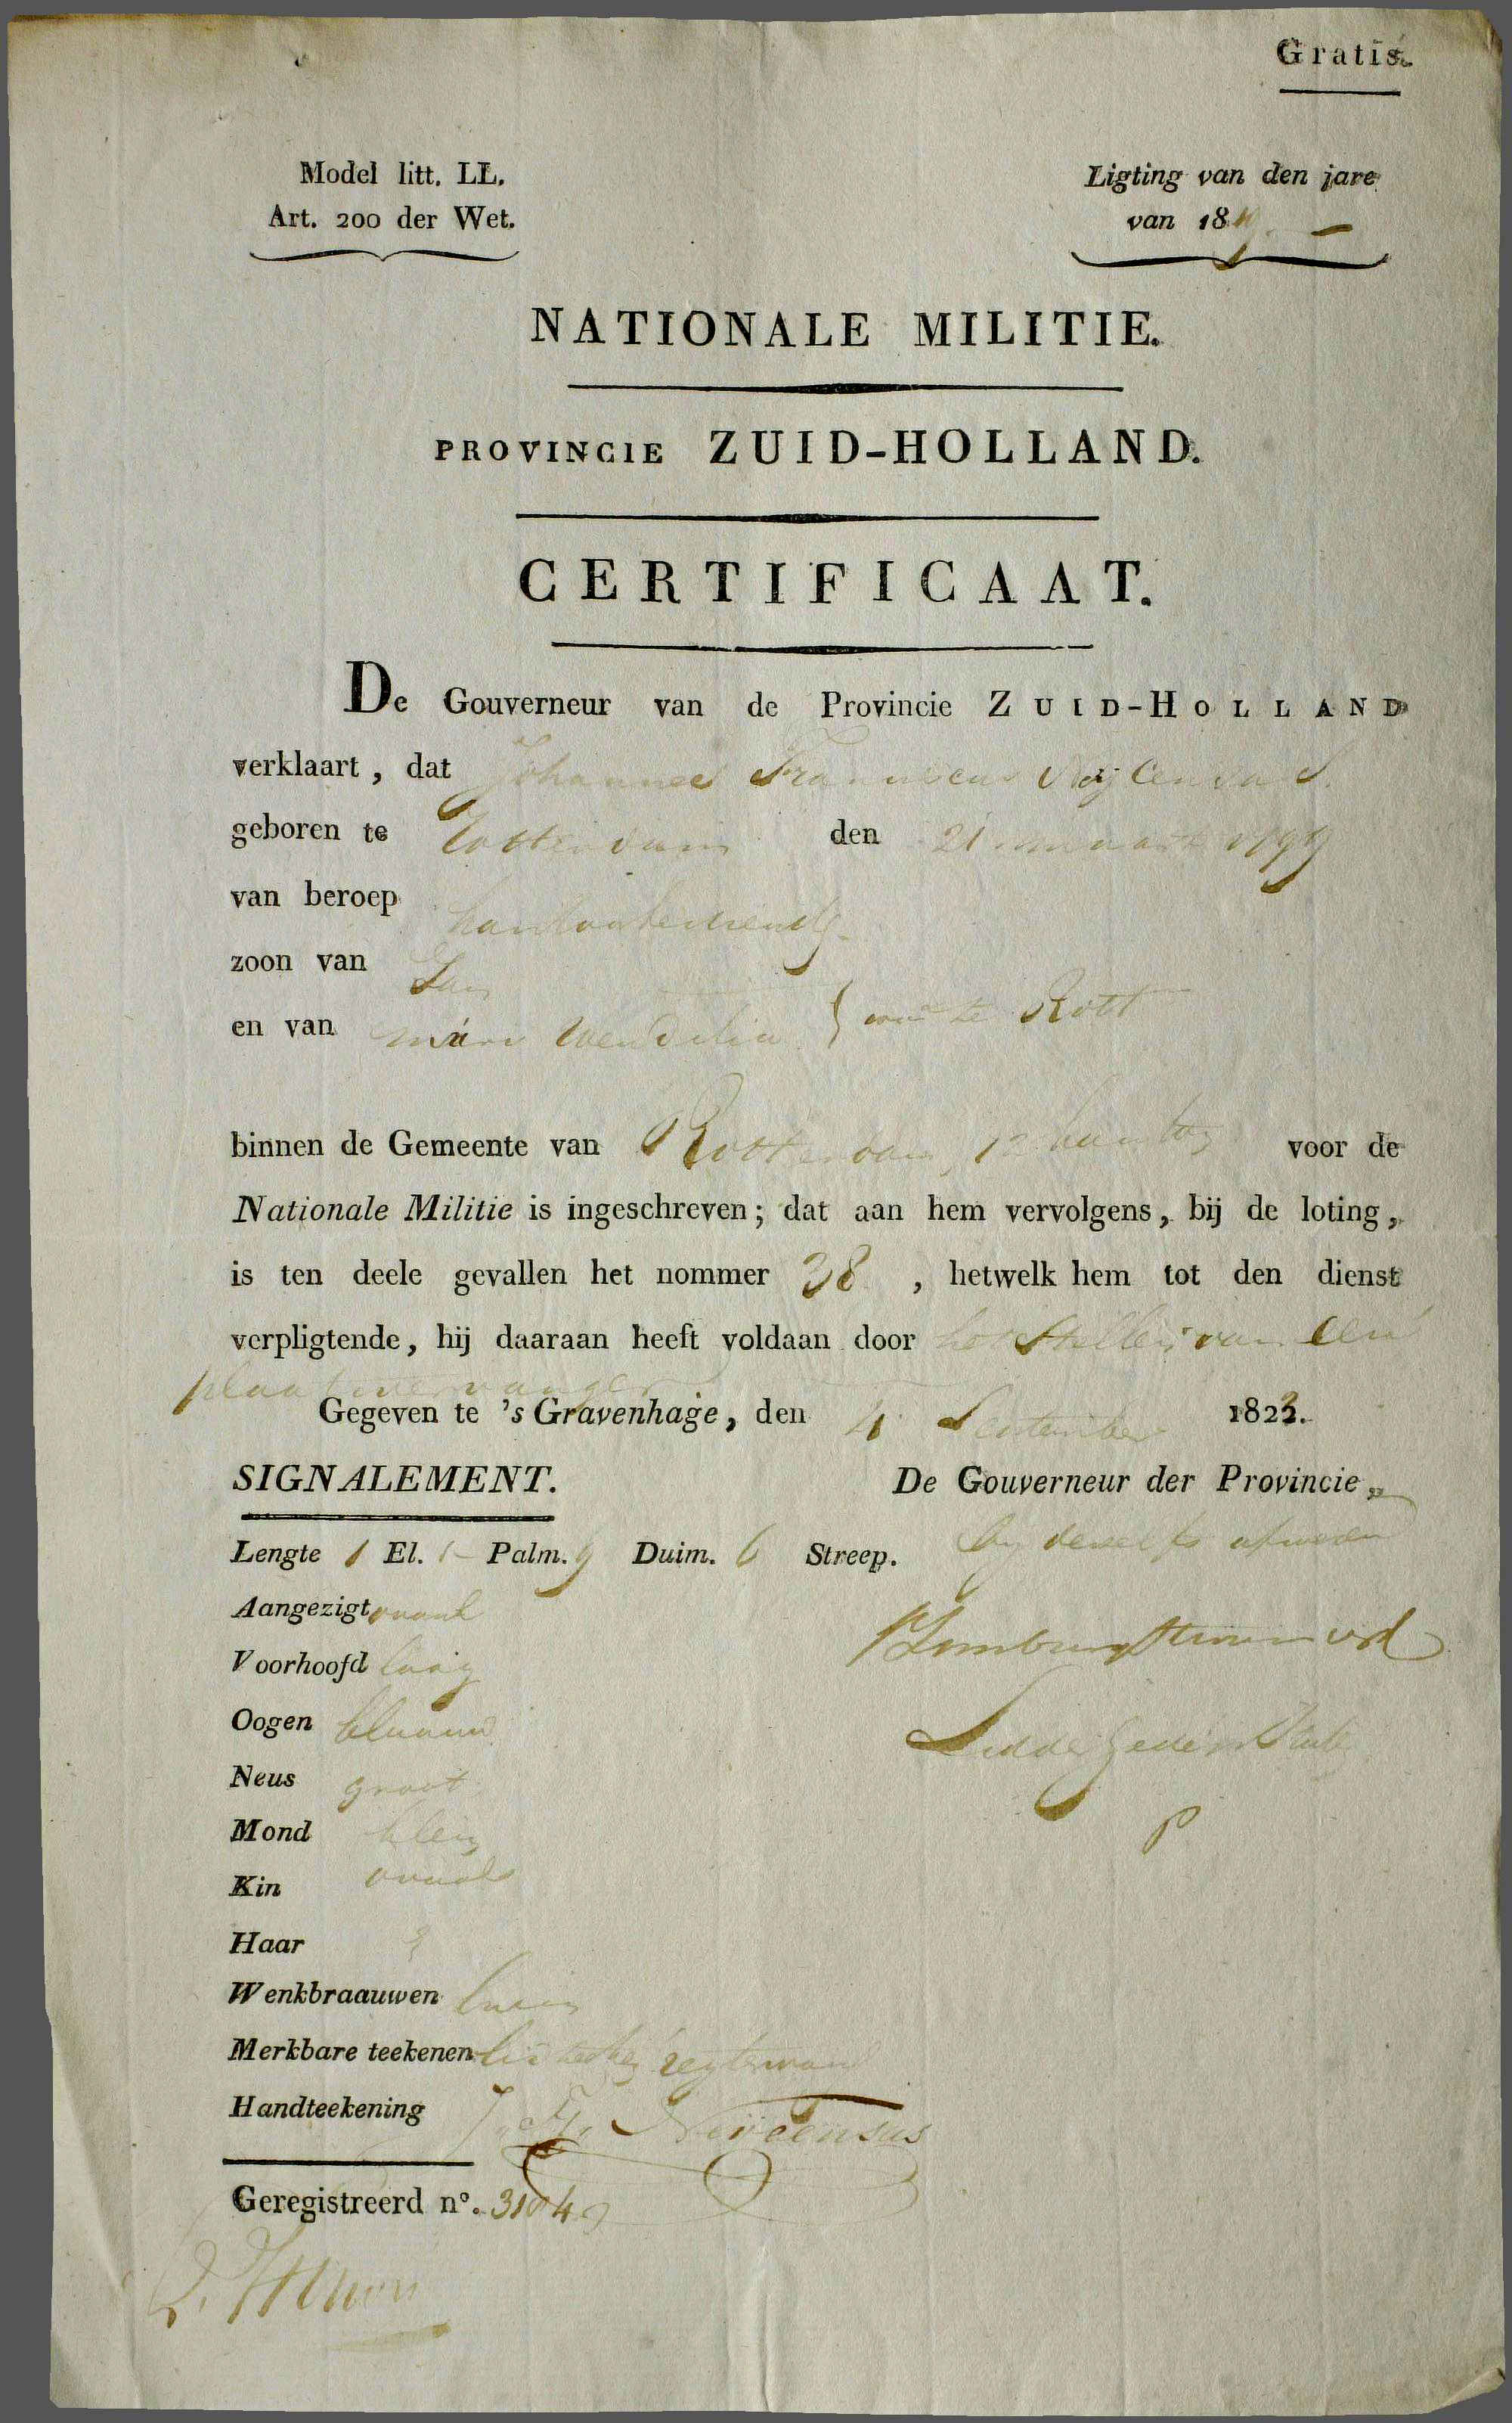 Gratis.
Model litt. LL.
Art. 200 der Wet.
Ligting van den jare
van 18
NATIONALE MILITIE.
PROVINCIE ZUID-HOLLAND.
CERTIFICAAT.
De Gouverneur van de Provincie ZUID-HOLLAND
verklaart, dat Johannes Franciscus
geboren te Rotterdam den 21 maart 1799
van beroep kantoorbediende
zoon van Jan
en van Wendelin te Rott
binnen de Gemeente van Rotterdam, voor de
Nationale Militie is ingeschreven; dat aan hem vervolgens, bij de loting,
is ten deele gevallen het nommer 38, hetwelk hem tot den dienst
verpligtende, hij daaraan heeft voldaan door het stellen van een
plaatsvervanger
Gegeven te 's Gravenhage, den 4 September 1823.
SIGNALEMENT.
De Gouverneur der Provincie,
Lengte 1 El. Palm. 9 Duim. 6 Streep.
by deszelfs
Aangezigt ovaal
Voorhoofd laag
Oogen blaauw
Neus groot
Mond klein
Kin ovaal
Haar
Wenkbraauwen bruin
Merkbare teekenen
Handteekening
Geregistreerd nº.